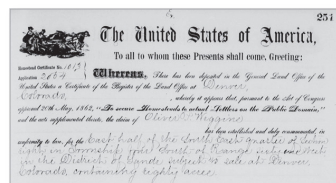 6.
251
The United States of America,
To all to whom these Presents shall come, Greeting:
Homestead Certificate No. 1013
Application 2064
Whereas, There has been deposited in the General Land Office of the
United States a Certificate of the Register of the Land Office at Denver,
Colorado, whereby it appears that, pursuant to the Act of Congress
approved 20th May, 1862, "To secure Homesteads to actual Settlers on the Public Domain,"
and the acts supplemental thereto, the claim of Oliver P. Wiggins
has been established and duly consummated, in
conformity to law, for the East half of the South East quarter of Section
eight in Township three South of Range sixty eight West
in the District of Lands subject to sale at Denver
Colorado, containing eighty acres